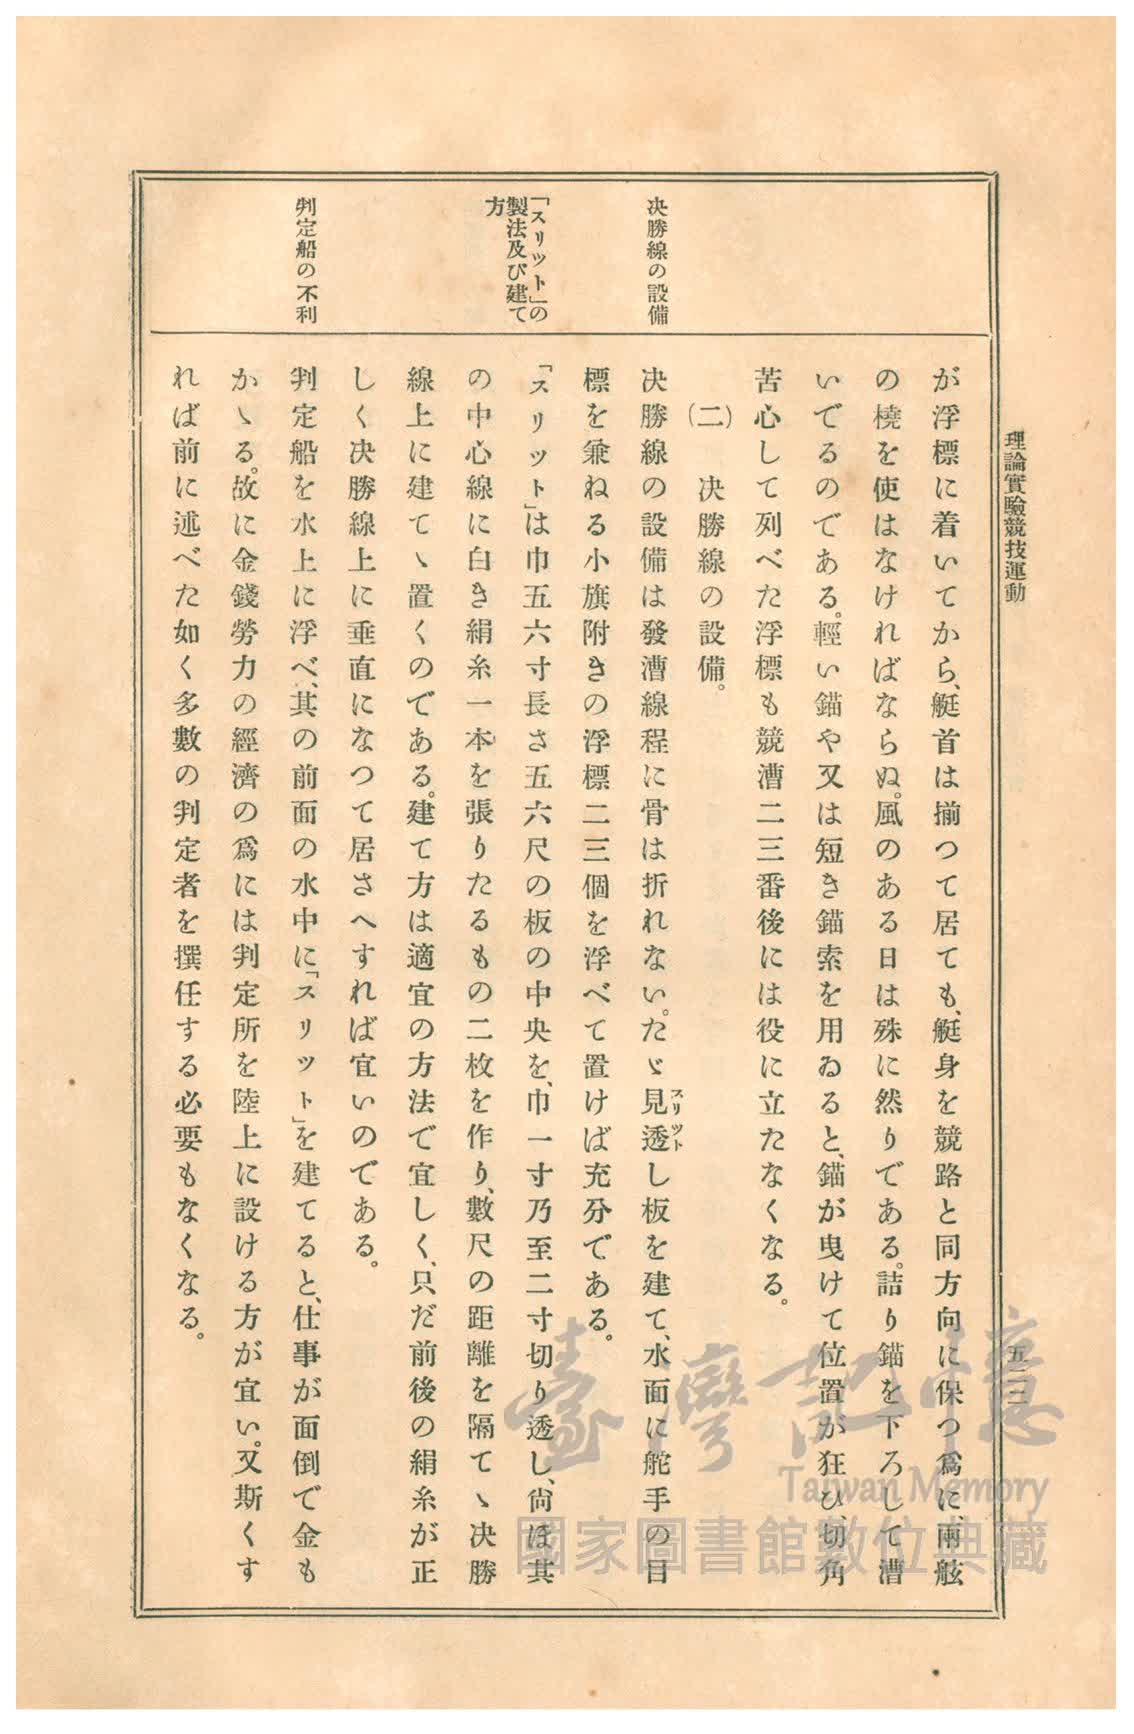 理論實驗競技運動
五三二
决勝線の設備
「スリット」の
製法及び建て
方
判定船の不利
が浮標に着いてから、艇首は揃つて居ても、艇身を競路と同方向に保つ爲に、兩舷
の橈を使はなければならぬ。風のある日は殊に然りである。詰り錨を下ろして漕
いでるのである。輕い錨や又は短き錨索を用ゐると、錨が曳けて位置が狂ひ、切角
苦心して列べた浮標も競漕二三番後には役に立たなくなる。
(二)　决勝線の設備。
决勝線の設備は發漕線程に骨は折れない。たゞ見透し板を建て、水面に舵手の目
スリット
標を兼ねる小旗附きの浮標二三個を浮べて置けば充分である。
「スリット」は巾五六寸長さ五六尺の板の中央を、巾一寸乃至二寸切り透し、尙ほ其
の中心線に白き絹糸一本を張りたるもの二枚を作り、數尺の距離を隔てゝ决勝
線上に建てゝ置くのである。建て方は適宜の方法で宜しく、只だ前後の絹糸が正
しく决勝線上に垂直になつて居さへすれば宜いのである。
判定船を水上に浮べ、其の前面の水中に「スリット」を建てると、仕事が面倒で金も
かゝる。故に金錢勞力の經濟の爲には判定所を陸上に設ける方が宜い。又斯くす
れば前に述べた如く多數の判定者を撰任する必要もなくなる。
臺灣記憶
Taiwan Memory
國家圖書館數位典藏